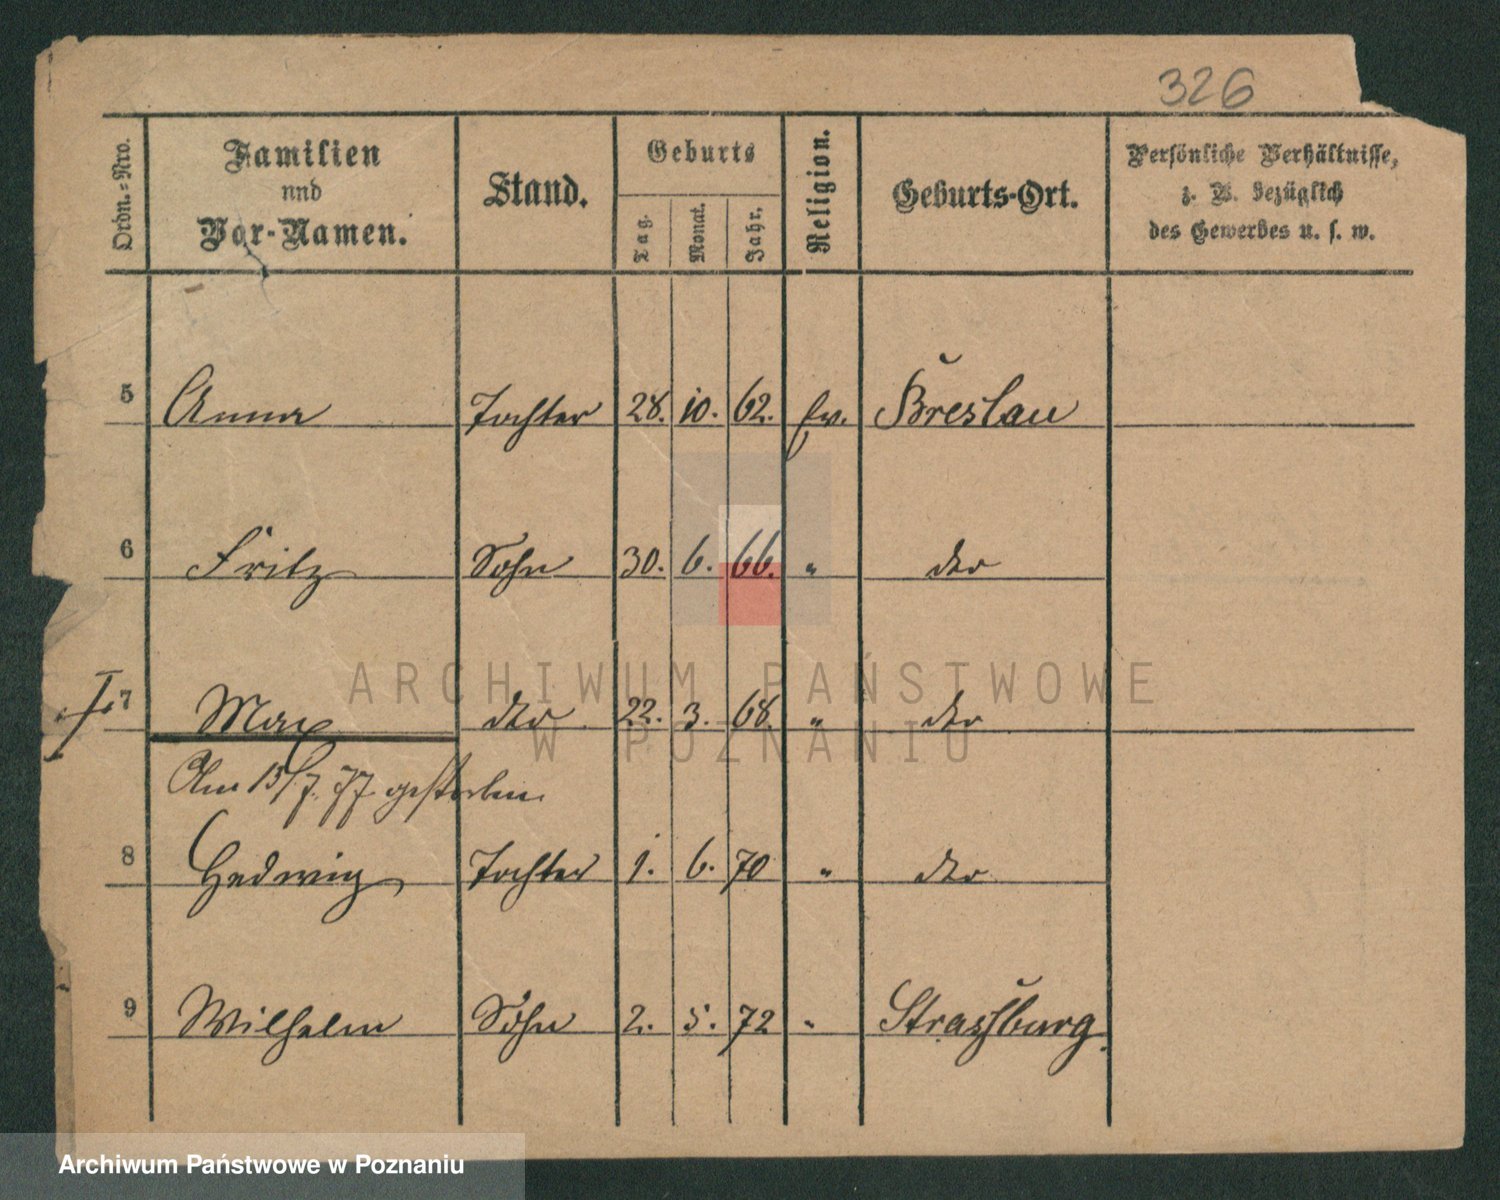 326
Ordn.-Nro.
Familien
und
Vor-Namen.
Stand.
Geburts
Tag.
Monat.
Jahr.
Religion.
Geburts-Ort.
Persönliche Verhältnisse,
z. B. bezüglich
des Gewerbes u. s. w.
5 Anna Tochter 28. 10. 62. ev. Breslau
6 Fritz Sohn 30. 6. 66. " dto
7 Max dto 22. 3. 68. " dto
Am 15/7. 77. gestorben.
8 Hedwig Tochter 1. 6. 70 " dto
9 Wilhelm Sohn 2. 5. 72 " Strassburg.
ARCHIWUM PAŃSTWOWE
W POZNANIU
Archiwum Państwowe w Poznaniu